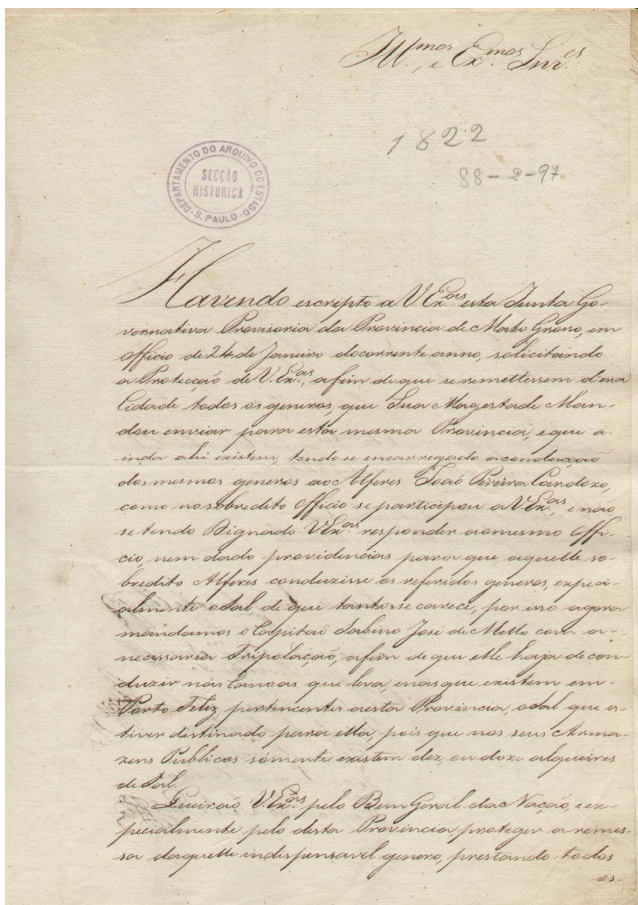 Ill.mos, e Ex.mos Snr.es
1822
88-2-97
DEPARTAMENTO DO ARQUIVO DO ESTADO
SECÇÃO
HISTORICA
- S. PAULO -
Havendo escripto a V Ex.as esta Junta Go-
vernativa Provisoria da Provincia de Mato Groso, em
officio de 24 de Janeiro do corrente anno, solicitando
a Protecção de V. Ex.as, afim de que se remettessem dessa
Cidade todos os generos, que Sua Magestade Man-
dou enviar para esta mesma Provincia, e que a-
inda ahi existem, tendo se encarregado a conducção
dos mesmos generos ao Alferes João Pereira Cardozo,
como no sobredito officio se participou a V. Ex.as, e não
se tendo Dignado V Ex.as responder ao mesmo Offi-
cio, nem dado providencias para que aquelle so-
bredito Alferes conduzisse os referidos generos, especi-
almente o Sal de que tanto se carece, por isso agora
mandamos o Capitão Sabino José de Mello com a
necessaria Tripolação, afim de que elle haja de con-
duzir nas Canoas que leva, e nas que existem em
Porto Feliz pertencentes a esta Provincia, o Sal que es-
tiver destinado para ella, pois que nos seus Arma-
zens Publicos sómente existem dez, ou doze alqueires
de Sal.
Queirão V. Ex.as pelo Bem Geral da Nação, e es-
pecialmente pelo desta Provincia proteger a remes-
sa daquelle indispensavel genero, prestando todos
os-